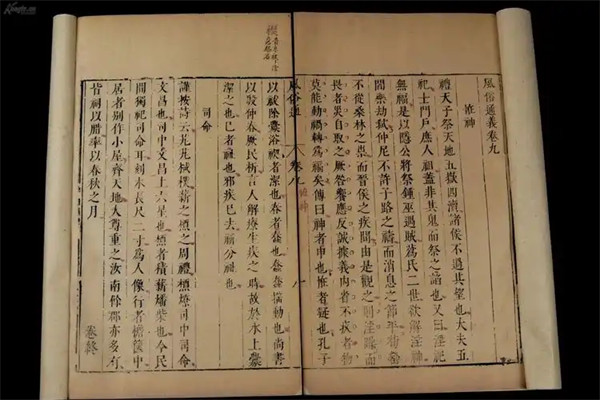 風俗通義卷九
怪神
禮天子祭天地五嶽四瀆諸侯不過其望也大夫五
祀士門戶庶人祖蓋非其鬼而祭之諂也又曰淫祀
無福是以隱公將祭鍾巫遇賊蒍氏二世欲解淫神
閻樂劫弒仲尼不許子路之禱而消息之節平荊莊
不從桑林之祟而晉侯之疾間由是觀之則淫躁而
畏者災自取之厥咎響應反誠據義內省不疚者物
莫能動禍轉為福矣傳曰神者申也怪者疑也孔子
風俗通 卷八
以祓除釁浴禊者潔也春者蠢也蠢蠢搖動也尚書
以殷仲春厥民析言人解療生疾之時故於水上釁
潔之也巳者祉也邪疾已去祈介祉也
司命
謹按詩云芃芃棫樸薪之槱之周禮槱燎司中司命
文昌也司中文昌上六星也槱者積薪燔柴也今民
間獨祀司命耳刻木長尺二寸為人像行者檐篋中
居者別作小屋齊天地大尊重之汝南餘郡亦多有
皆祠以腊率以春秋之月
卷終